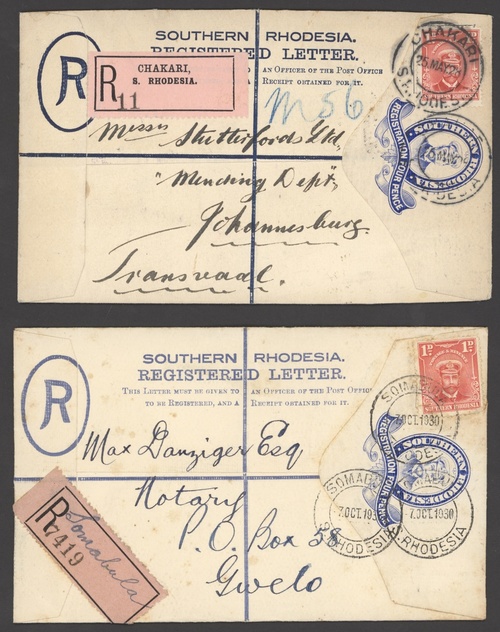 CHAKARI
25 MAY 26
S. RHODES
SOUTHERN RHODESIA.
REGISTERED LETTER.
AN OFFICER OF THE POST OFFICE
RECEIPT OBTAINED FOR IT.
R
R
CHAKARI,
S. RHODESIA.
11
M 56
SOUTHERN
REGISTRATION FOUR PENCE
Messrs Stuttafords Ltd,
"Mending Dept",
Johannesburg.
Transvaal.
SOUTHERN RHODESIA.
REGISTERED LETTER.
THIS LETTER MUST BE GIVEN TO AN OFFICER OF THE POST OFFICE
TO BE REGISTERED, AND A RECEIPT OBTAINED FOR IT.
R
1D 1D
SOUTHERN RHODESIA
SOMABULA
7.OCT.1930
SOUTHERN RHODESIA
REGISTRATION FOUR PENCE
Max Danziger Esq
Notary
P.O. Box 58
Gwelo
R
7419
Somabula
7.OCT.1930
S.RHODESIA
7.OCT.1930
S.RHODESIA